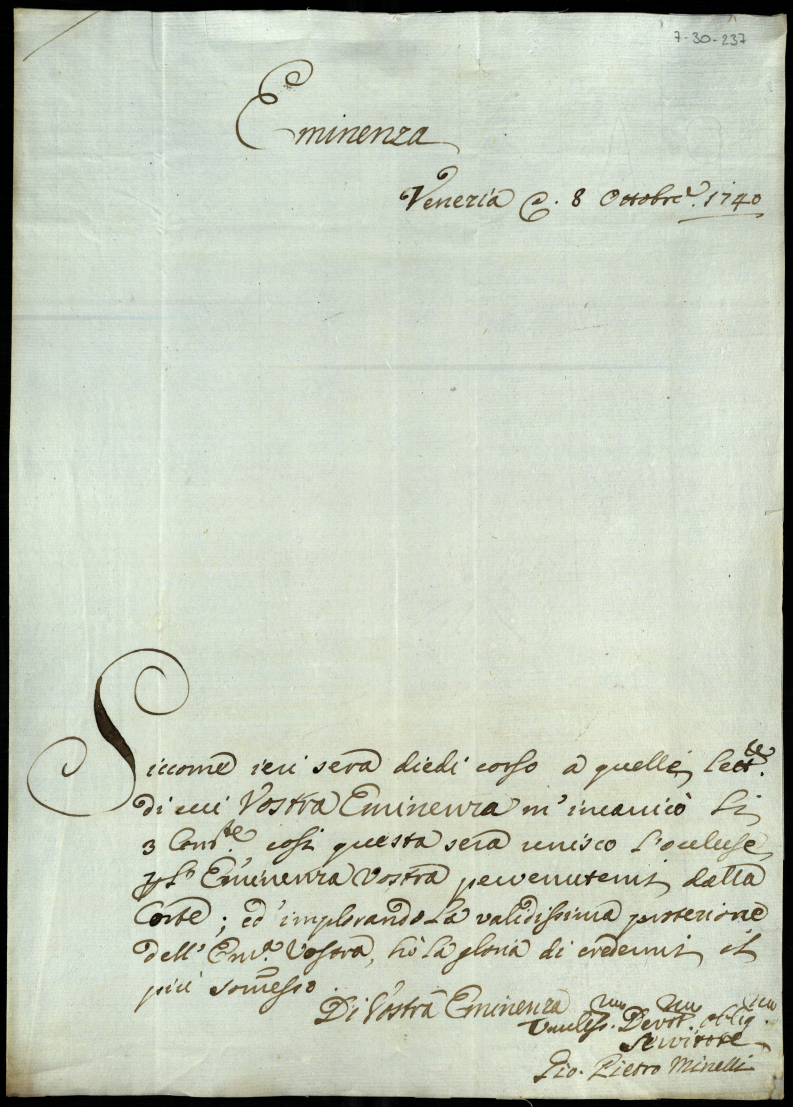 7-30-237
Eminenza
Venezia 8 Ottobre. 1740
Siccome ieri sera diedi corso a quelle lette.
di cui Vostra Eminenza m'incaricò li
3 Corrte. così questa sera unisco l'occluse
Eminenza Vostra pervenutemi dalla
Corte; ed' implorando la validissima protezione
dell' Emza. Vostra, hò la gloria di credermi il
più somesso
Di Vostra Eminenza
Umiliss.mo Devot.mo oblig.mo
Servitore
Gio. Pietro Minelli